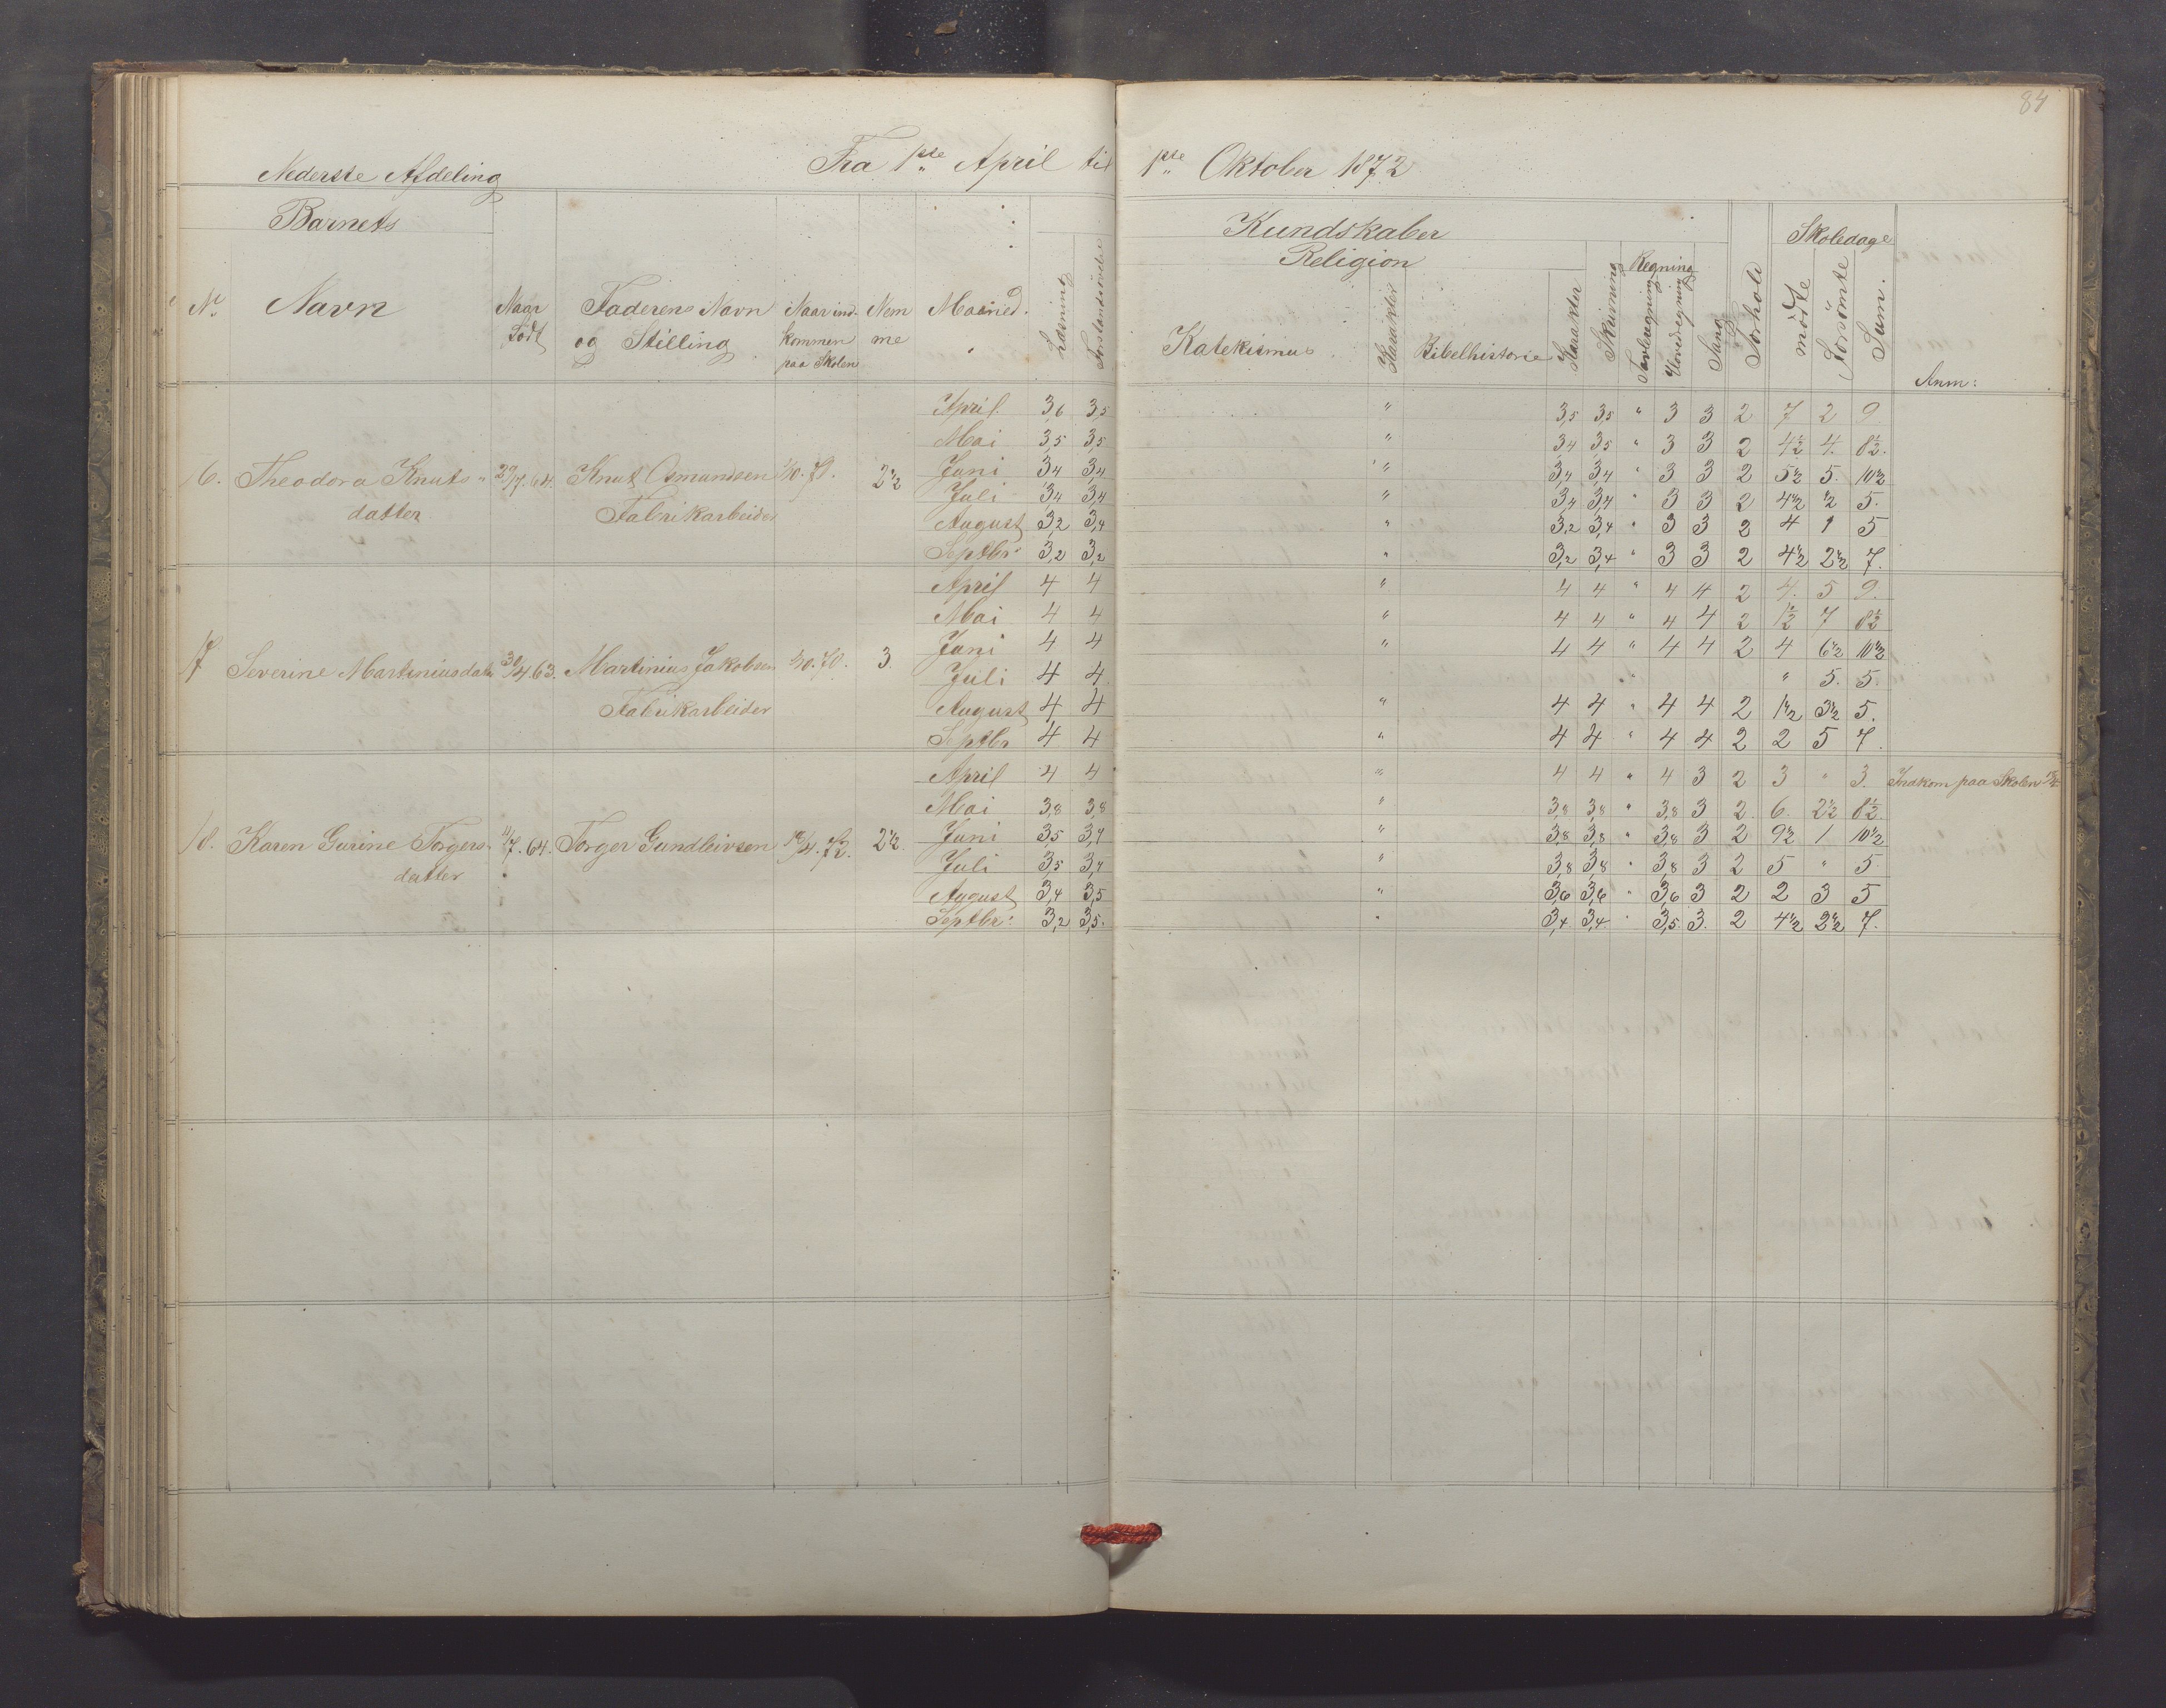 84
Nederste Afdeling Fra 1ste April til 1ste Oktober 1872
Barnets Kundskaber Skoledage
Religion Regning
No. Navn Naar Faderens Navn Naar ind- Nem Maaned. Læsning Forstandsøvelse Katekismus. Karakter Bibelhistorie Karakter Skrivning Tavleregning Hovedregning Sang Forhold mødte Forsömte Sum. Anm:
Född og Stilling kommen me
paa Skolen
April 3,6 3,5 " 3,5 3,5 " 3 3 2 7 2 9
Mai 3,5 3,5 " 3,4 3,5 " 3 3 2 4½ 4. 8½.
16. Theodora Knuts- 29/7.64. Knut Osmundsen 1/10.71. 2½ Juni 3,4 3,4 " 3,4 3,4 " 3 3 2 5½ 5. 10½
Juli 3,4 3,4 " 3,4 3,4 " 3 3 2 4½ ½ 5.
datter Fabrikarbeider August 3,2 3,4 " 3,2 3,4 " 3 3 2 4 1 5
Septbr: 3,2 3,2 " 3,2 3,4 " 3 3 2 4½ 2½ 7.
April 4 4 " 4 4 " 4 4 2 4. 5 9.
Mai 4 4 " 4 4 " 4 4 2 1½ 7 8½
Juni 4 4 " 4 4 " 4 4 2 4 6½ 10½
17 Severine Martiniusdatr 30/4.63. Martinius Jakobsen 1/10.70. 3. Juli 4 4 " " 5. 5.
Fabrikarbeider August 4 4 " 4 4 " 4 4 2 1½ 3½ 5.
Septbr 4 4 " 4 4 " 4 4 2 2 5 7.
April 4 4 " 4 4 " 4 3 2 3 " 3. Indkom paa Skolen
Mai 3,8 3,8 " 3,8 3,8 " 3,8 3 2. 6. 2½ 8½.
18. Karen Gurine Torgers- 11/7.64. Torger Gundleivsen 18/4.72. 2½. Juni 3,5 3,7 " 3,8 3,8 " 3,8 3 2 9½ 1 10½
datter Juli 3,5 3,7 " 3,8 3,8 " 3,8 3 2 5 " 5.
August 3,4 3,5 " 3,6 3,6 " 3,6 3 2 2 3 5
Septbr: 3,2 3,5. " 3,4 3,4 " 3,5. 3. 2 4½ 2½ 7.